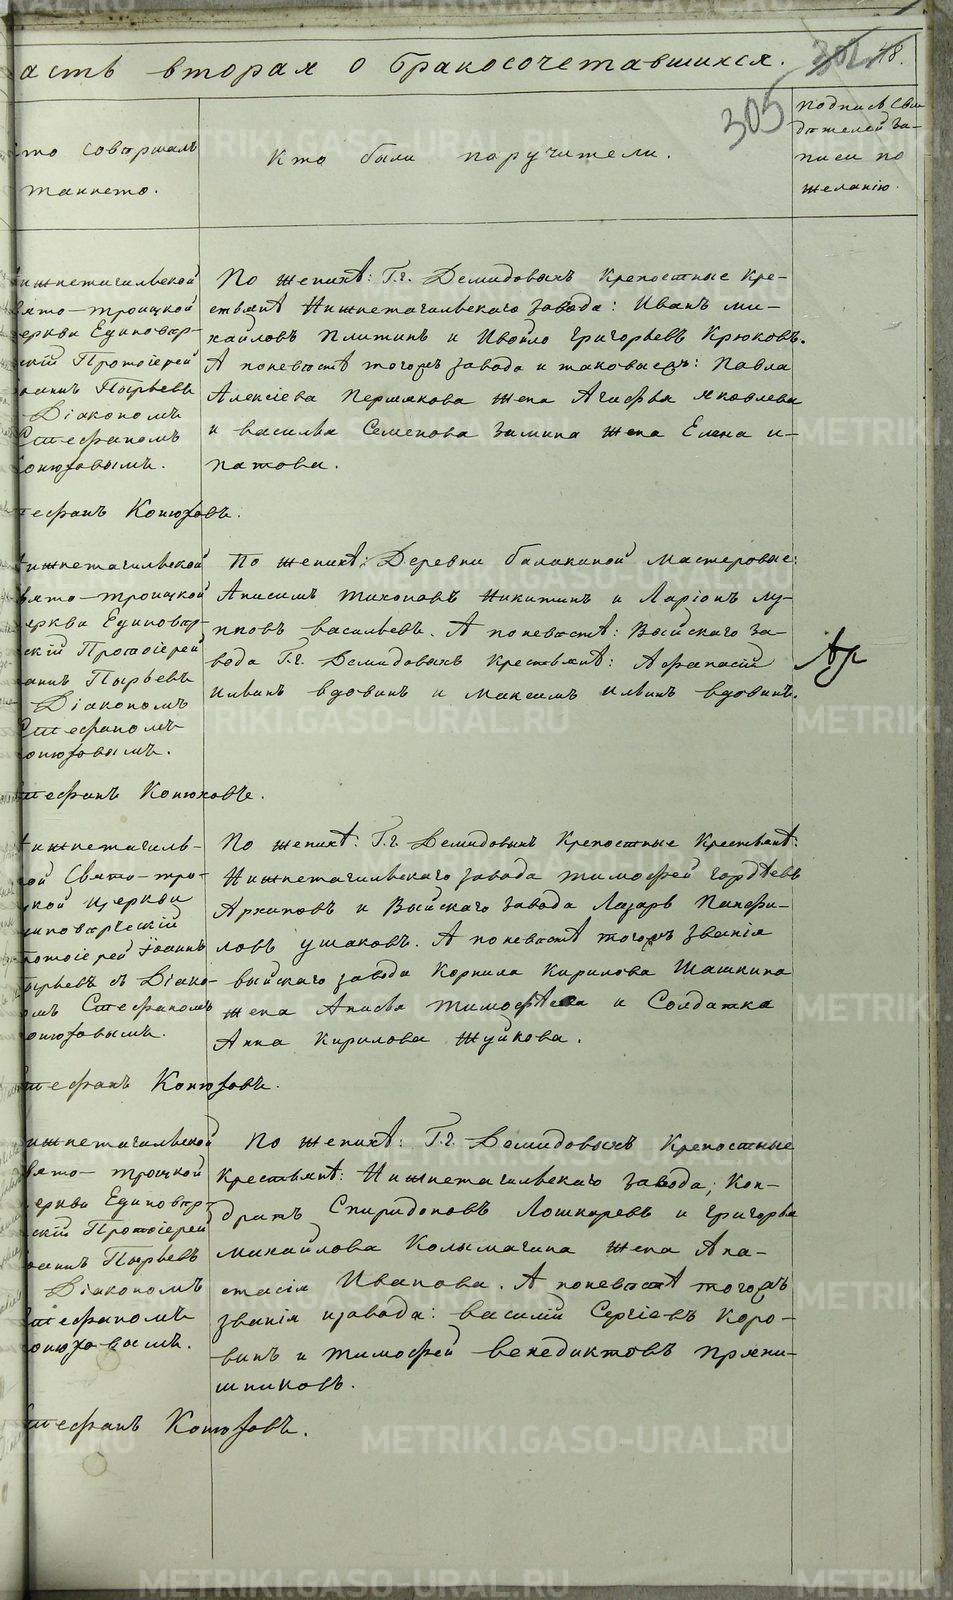 асть вторая о бракосочетавшихся.
305
48.
то совершалъ
таинство.
Кто были поручители.
Подпись сви-
дѣтелей за-
писи по
желанію.
ижнетагильской
вято-троицкой
еркви Единовѣр-
скій Протоіерей
оаннъ Пырьевъ
Діакономъ
Стефаномъ
онюховымъ.
тефанъ Конюховъ.
По женихѣ: Г.г. Демидовыхъ крепостные кре-
стьянѣ Нижнетагильскаго завода: Иванъ Ми-
хайловъ Плитинъ и Григорьевъ Крюковъ.
А поневѣстѣ тогожъ завода и таковаежъ: Павла
Алексіева Пермякова жена Агафья Яковлева
и Василья Семенова Зимина жена Елена И-
патова.
ижнетагильской
вято-троицкой
еркви Единовѣр-
скій Протоіерей
аннъ Пырьевъ
Діакономъ
Стефаномъ
онюховымъ.
тефанъ Конюховъ.
По женихѣ: Деревни Балакиной мастеровые:
Анисимъ Тихоновъ Никитинъ и Ларіонъ Лу-
пповъ Васильевъ. А поневѣстѣ: Выйскаго за-
вода Г.г. Демидовыхъ крестьянѣ: Афанасій
Ильинъ Вдовинъ и Максимъ Ильинъ Вдовинъ.
ижнетагиль-
кой Свято-тро-
цкой церкви
диновѣрческій
ротоіерей Іоаннъ
ырьевъ съ Діако-
омъ Стефаномъ
онюховымъ.
тефанъ Конюховъ.
По женихѣ: Г.г. Демидовыхъ крепостные крестьянѣ:
Нижнетагильскаго завода Тимофей Гордѣевъ
Архиповъ и Выйскаго завода Лазарь Панфи-
ловъ Ушаковъ. А поневѣстѣ тогожъ званія
выйскаго завода Корнила Кирилова Шашкина
жена Анисья Тимофѣева и Солдатка
Анна Кирилова Жуйкова.
ижнетагильской
вято-троицкой
еркви Единовѣр-
скій Протоіерей
оаннъ Пырьевъ
Діакономъ
Стефаномъ
онюховымъ.
тефанъ Конюховъ.
По женихѣ: Г.г. Демидовыхъ крепостные
крестьянѣ: Нижнетагильскаго завода; Кон-
дратъ Спиридоновъ Лошкаревъ и Григорья
Михайлова Колымагина жена Ана-
стасія Иванова. А поневѣстѣ тогожъ
званія изавода: Василій Сергіевъ Коро-
винъ и Тимофей Венедиктовъ Пряни-
шниковъ.
METRIKI.GASO-URAL.RU